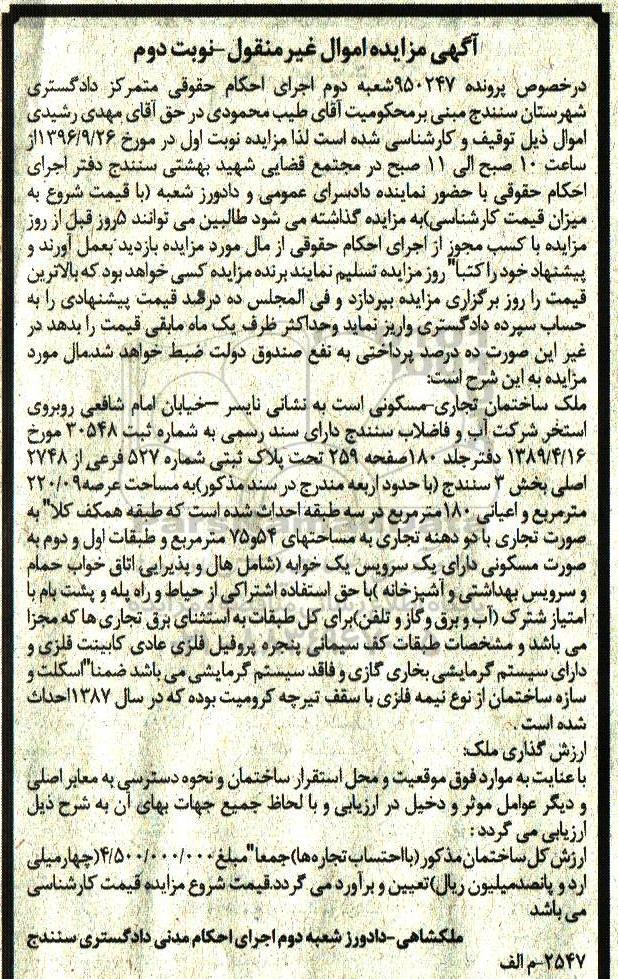 آگهی مزایده اموال غیر منقول-نوبت دوم
درخصوص پرونده ۹۵۰۲۴۷شعبه دوم اجرای احکام حقوقی متمرکز دادگستری
شهرستان سنندج مبنی برمحکومیت آقای طیب محمودی در حق آقای مهدی رشیدی
اموال ذیل توقیف و کارشناسی شده است لذا مزایده نوبت اول در مورخ ۱۳۹۶/۹/۲۶از
ساعت ۱۰ صبح الی ۱۱ صبح در مجتمع قضایی شهید بهشتی سنندج دفتر اجرای
احکام حقوقی با حضور نماینده دادسرای عمومی و دادورز شعبه (با قیمت شروع به
میزان قیمت کارشناسی)به مزایده گذاشته می شود طالبین می توانند ۵روز قبل از روز
مزایده با کسب مجوز از اجرای احکام حقوقی از مال مورد مزایده بازدید بعمل آورند و
پیشنهاد خود را کتبا" روز مزایده تسلیم نمایند برنده مزایده کسی خواهد بود که بالاترین
قیمت را روز برگزاری مزایده بپردازد و فی المجلس ده درصد قیمت پیشنهادی را به
حساب سپرده دادگستری واریز نماید وحداکثر ظرف یک ماه مابقی قیمت را بدهد در
غیر این صورت ده درصد پرداختی به نفع صندوق دولت ضبط خواهد شد.مال مورد
مزایده به این شرح است:
ملک ساختمان تجاری-مسکونی است به نشانی نایسر –خیابان امام شافعی روبروی
استخر شرکت آب و فاضلاب سنندج دارای سند رسمی به شماره ثبت ۳۰۵۴۸ مورخ
۱۳۸۹/۴/۱۶ دفتر جلد ۱۸۰صفحه ۲۵۹ تحت پلاک ثبتی شماره ۵۲۷ فرعی از ۲۷۴۸
اصلی بخش ۳ سنندج (با حدود اربعه مندرج در سند مذکور)به مساحت عرصه۲۲۰/۰۹
مترمربع و اعیانی ۱۸۰مترمربع در سه طبقه احداث شده است که طبقه همکف کلا" به
صورت تجاری با دو دهنه تجاری به مساحتهای ۵۴و۷۵ مترمربع و طبقات اول و دوم به
صورت مسکونی دارای یک سرویس یک خوابه (شامل هال و پذیرایی اتاق خواب حمام
و سرویس بهداشتی و آشپزخانه )با حق استفاده اشتراکی از حیاط و راه پله و پشت بام با
امتیاز شترک (آب و برق و گاز و تلفن)برای کل طبقات به استثنای برق تجاری ها که مجزا
می باشد و مشخصات طبقات کف سیمانی پنجره پروفیل فلزی عادی کابینت فلزی و
دارای سیستم گرمایشی بخاری گازی و فاقد سیستم گرمایشی می باشد ضمنا"اسکلت و
سازه ساختمان از نوع نیمه فلزی با سقف تیرچه کرومیت بوده که در سال ۱۳۸۷احداث
شده است .
ارزش گذاری ملک:
با عنایت به موارد فوق موقعیت و محل استقرار ساختمان و نحوه دسترسی به معابر اصلی
و دیگر عوامل موثر و دخیل در ارزیابی و با لحاظ جمیع جهات بهای آن به شرح ذیل
ارزیابی می گردد :
ارزش کل ساختمان مذکور (بااحتساب تجاره ها)جمعا"مبلغ۴/۵۰۰/۰۰۰/۰۰۰(چهارمیلی
ارد و پانصدمیلیون ریال)تعیین و برآورد می گردد.قیمت شروع مزایده قیمت کارشناسی
می باشد
ملکشاهی-دادورز شعبه دوم اجرای احکام مدنی دادگستری سنندج
۲۵۴۷-م الف